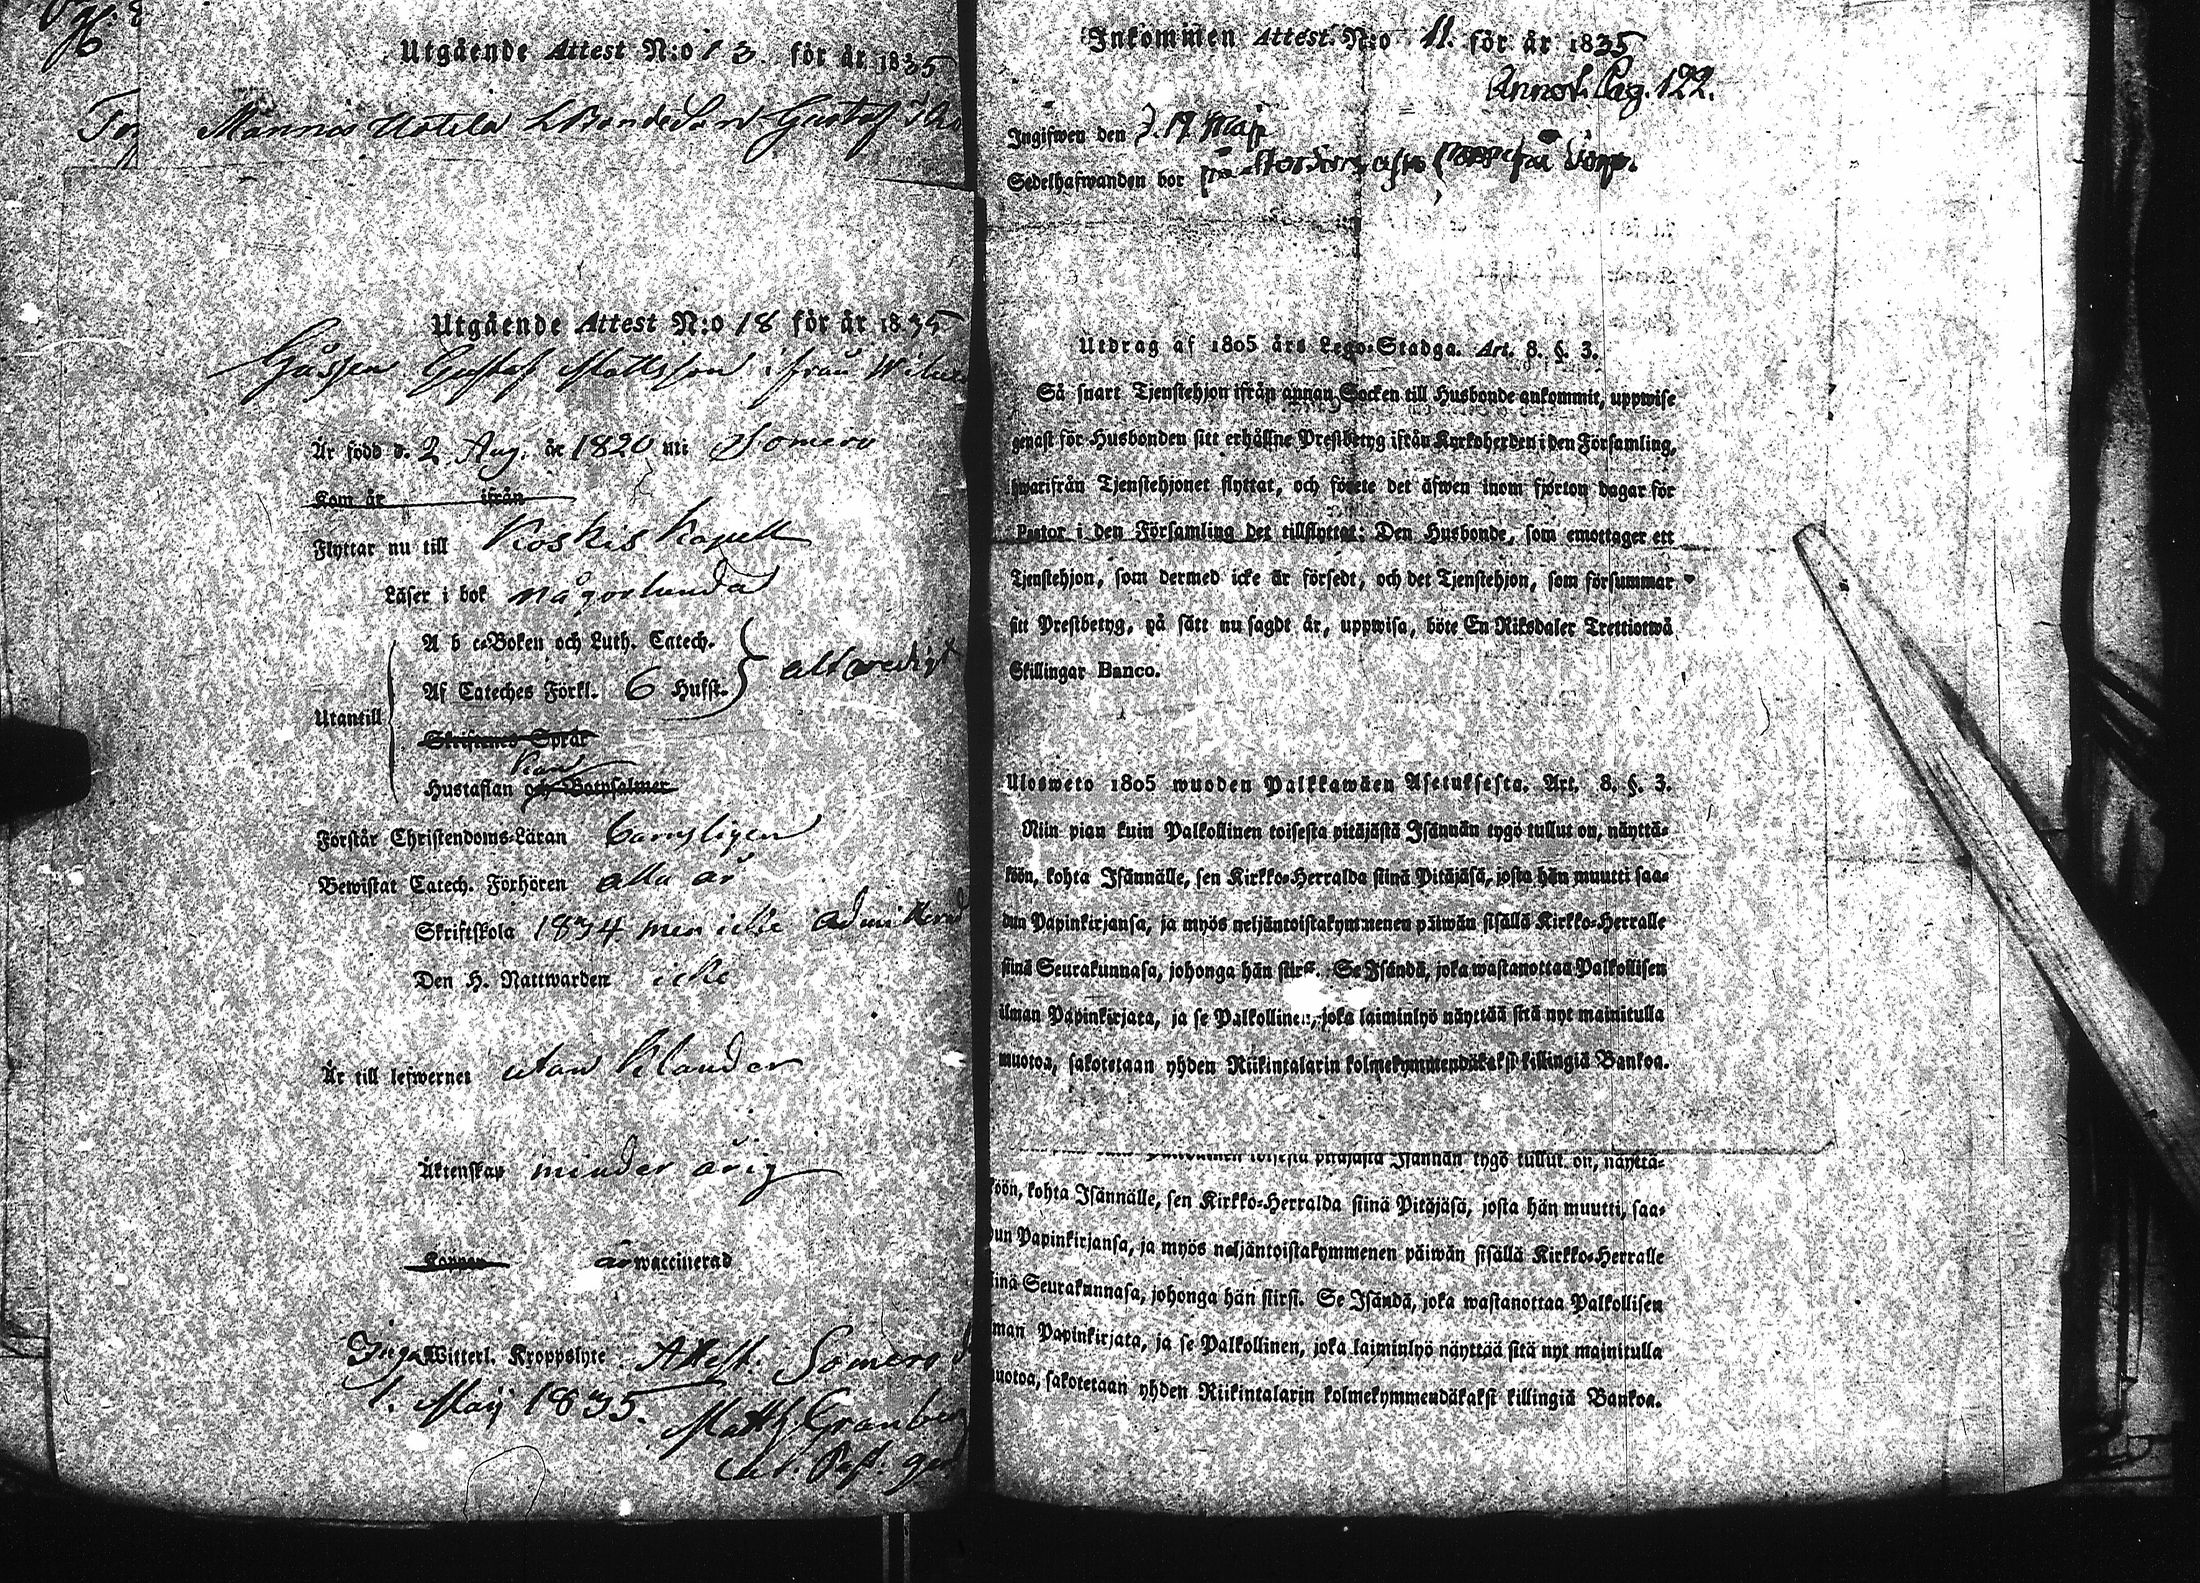 Utgående Attest N:o 13 för år 1835
Månnois Uotila Bondeson Gustaf
Utgående Attest N:o 18 för år 1835
Gåssen Gustaf Mattsson ifrån
Är född d. 2 Aug. år 1820 uti Somero
Kom år ifrån
Flyttar nu till Koskis Kapell
Läser i bok någorlunda
A b c-Boken och Luth. Catech.
Af Cateches Förkl. 6 Hufst.
Utantill
Skriftenes Språk
kan
Hustaflan och Botpsalmer
Förstår Christendoms-Läran barnsligen
Bewistat Catech. Förhören alla år
Skriftskola 1834 men icke admitterad
Den H. Nattwarden icke
Är till lefwernet utan klander
Äktenskap minderårig
Koppor är waccinerad
Inga Witterl. Kroppslyte. Attest. Somero d
1. Maij 1835.
Matth. Granberg
Past.
Inkommen Attest. N:o 11. för år 1835
Annot. Pag. 122.
Ingifwen den d. 19 Maji
Sedelhafwanden bor
Utdrag af 1805 års Lego-Stadga. Art. 8. §. 3.
Så snart Tjenstehjon ifrån annan Socken till Husbonde ankommit, uppwise
genast för Husbonden sitt erhållne Prestbetyg ifrån Kyrkoherden i den Församling,
hwarifrån Tjenstehjonet flyttat, och förete det äfwen inom fjorton dagar för
Pastor i den Församling det tillflyttat: Den Husbonde, som emottager ett
Tjenstehjon, som dermed icke är försedt, och det Tjenstehjon, som försummar
sitt Prestbetyg, på sätt nu sagdt är, uppwisa, böte En Riksdaler Trettiotwå
Skillingar Banco.
Ulosweto 1805 wuoden Palkkawäen Asetuksesta. Art. 8. §. 3.
Niin pian kuin Palkollinen toisesta pitäjästä Isännän tygö tullut on, näyttä-
köön, kohta Isännälle, sen Kirkko-Herralda siinä Pitäjäsä, josta hän muutti saa-
dun Papinkirjansa, ja myös neljäntoistakymmenen päiwän sisällä Kirkko-Herralle
siinä Seurakunnasa, johonga hän siirsi. Se Isändä, joka wastanottaa Palkollisen
ilman Papinkirjata, ja se Palkollinen, joka laiminlyö näyttää sitä nyt mainitulla
muotoa, sakotetaan yhden Riikintalarin kolmekymmendäkaksi killingiä Bankoa.
toisesta pitäjästä Isännän tygö tullut on, näyttä-
köön, kohta Isännälle, sen Kirkko-Herralda siinä Pitäjäsä, josta hän muutti, saa-
dun Papinkirjansa, ja myös neljäntoistakymmenen päiwän sisällä Kirkko-Herralle
siinä Seurakunnasa, johonga hän siirsi. Se Isändä, joka wastanottaa Palkollisen
ilman Papinkirjata, ja se Palkollinen, joka laiminlyö näyttää sitä nyt mainitulla
muotoa, sakotetaan yhden Riikintalarin kolmekymmendäkaksi killingiä Bankoa.